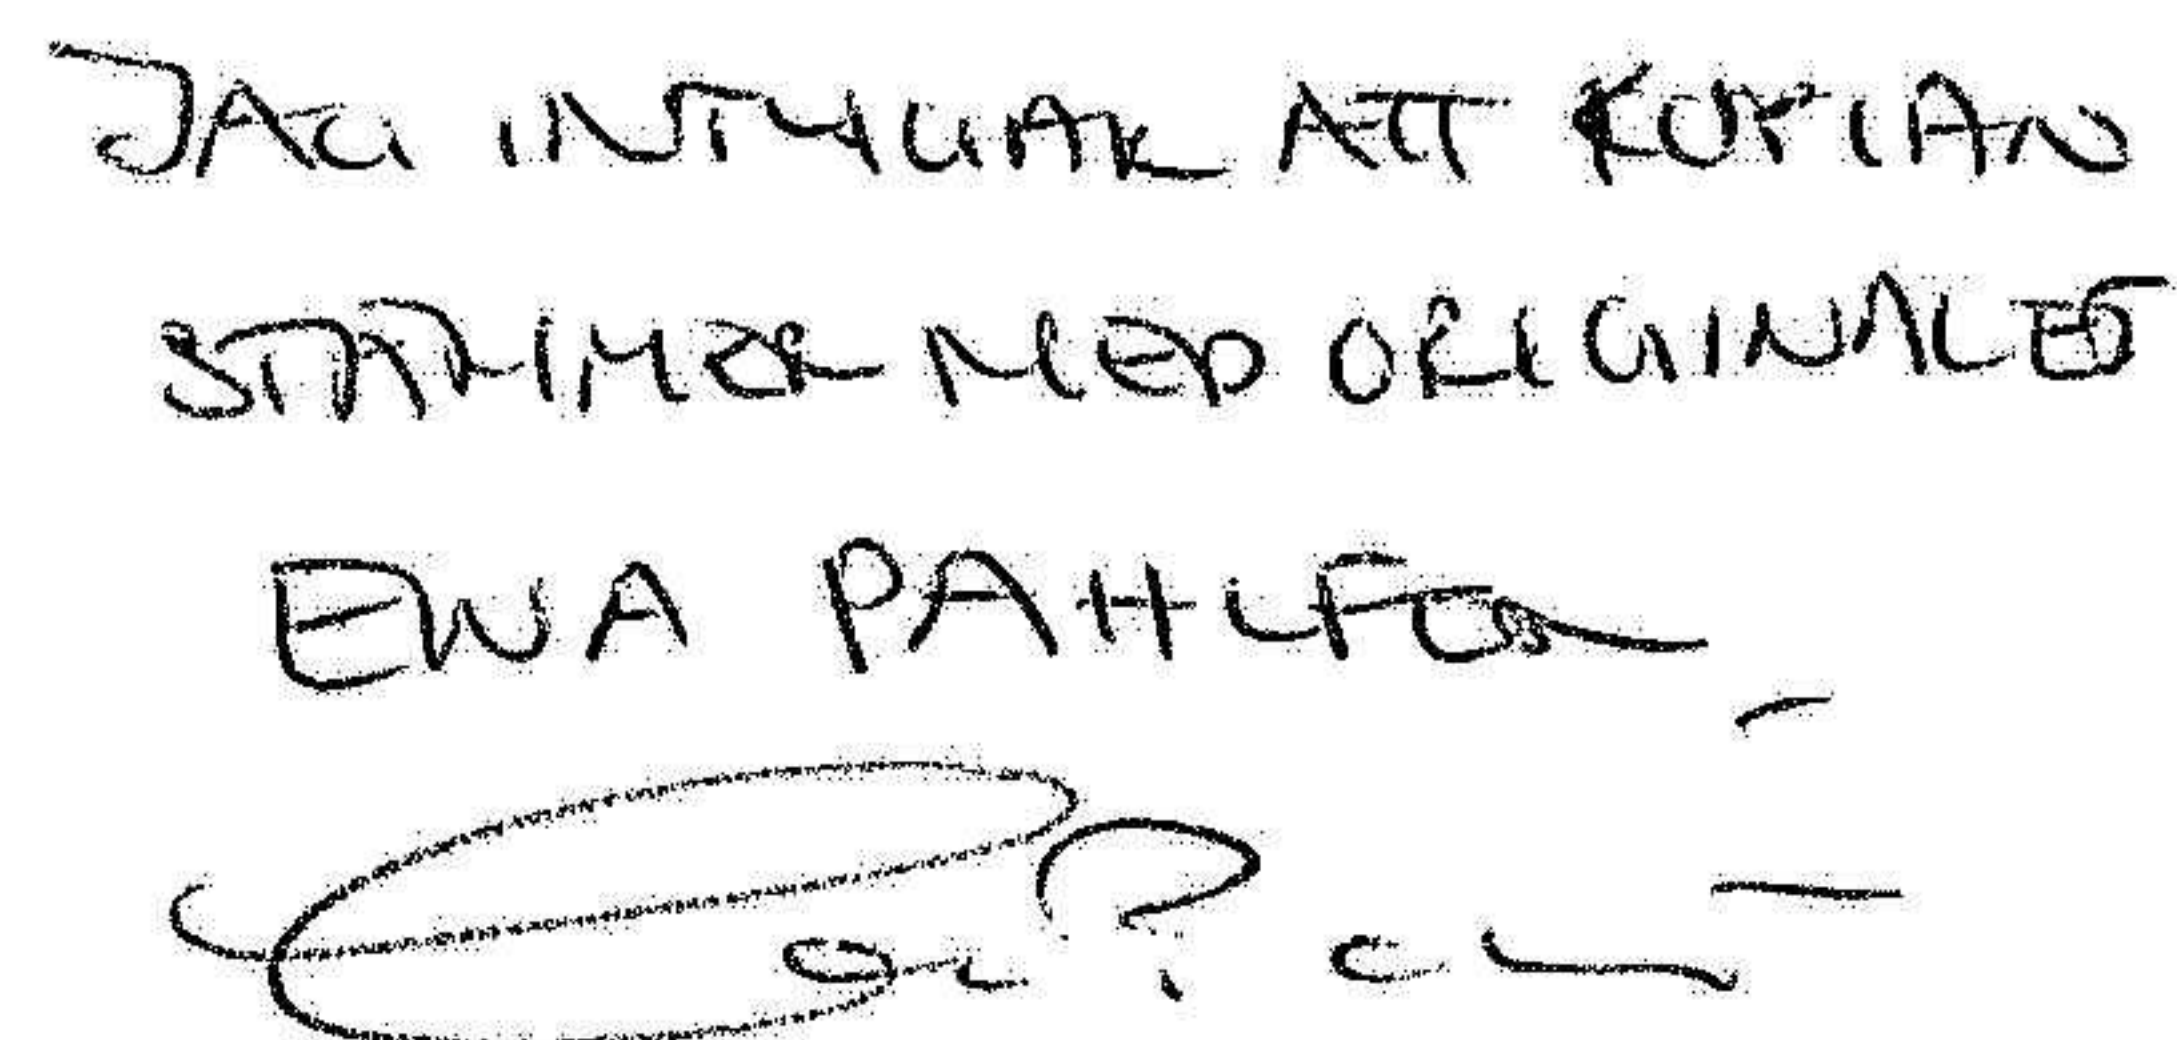 JAG INTYGAR ATT KOPIAN
STÄMMER MED ORIGINALET
EWA PAHLFER